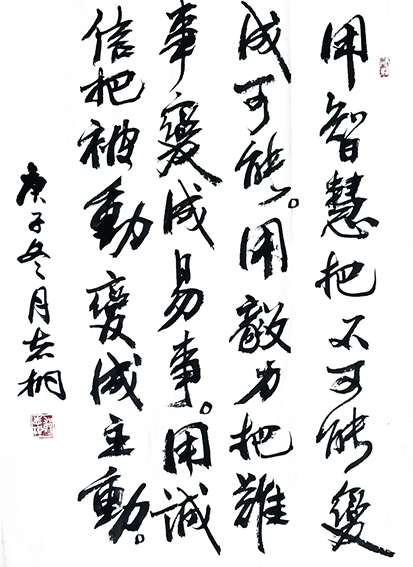 用智慧把不可能變
成可能。用毅力把難
事變成易事。用誠
信把被動變成主動。
庚子冬月志桐